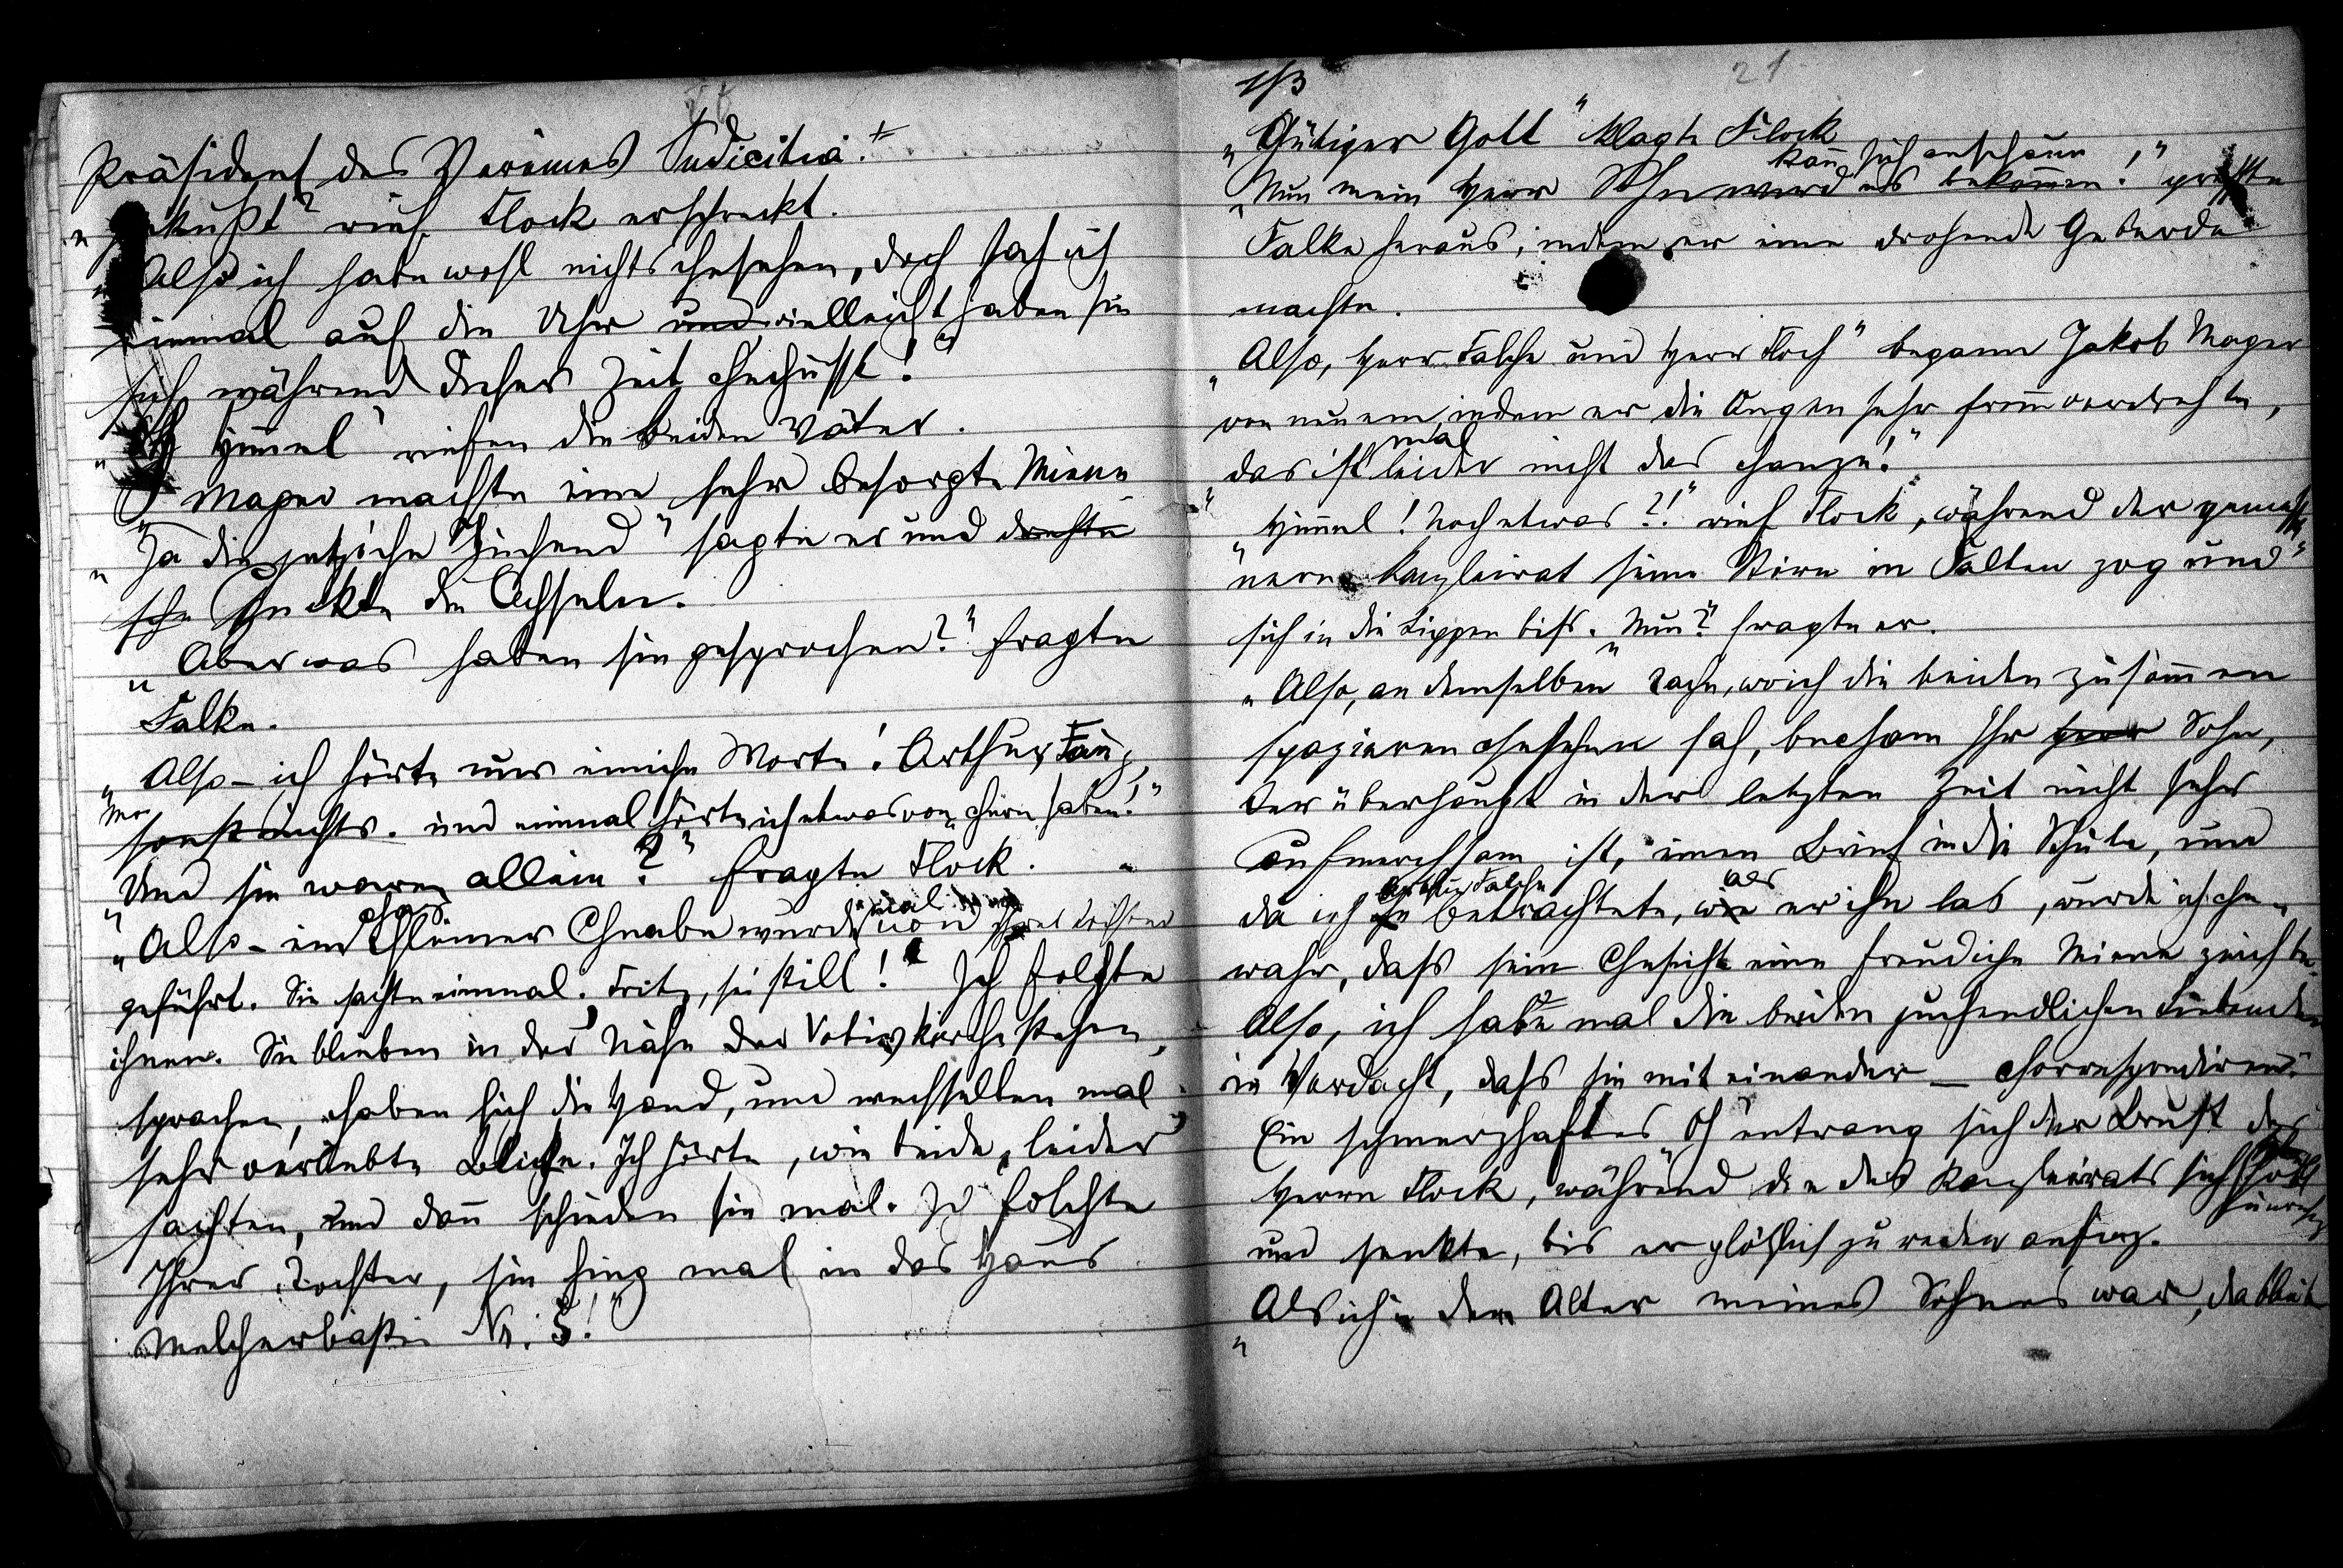 Präsident des Vereines Pudicitia."
„Gekußt" rief Flock erschreckt.
„Also ich habe wohl nichts chesehen, doch sah ich
einmal auf die Uhr und vielleicht haben sie
sich während dieser Zeit cheküsst!"
„Oh Himmel" riefen die beiden Väter.
Mayer machte eine sehr besorgte Miene
„Ja die jetziche Juchend" sagte er und drehte
zuckte die Achseln.
„Aber was haben sie gesprochen?" fragte
Falke.
„Also – ich hörte nur einiche Worte: Arthur, Fanny,
sonst nichts. und einmal hörte ich etwas von chern haben!"
„Und sie waren allein?" fragte Flock.
„Also – ein chleiner Chnabe wurde mal von Ihrer Tochter
geführt. Sie sachte einmal: Fritz, sei still! Ich folchte
ihnen. Sie blieben in der Nähe der Votivkirche stehen,
sprachen, chaben sich die Hand, und wechselten mal
sehr verliebte Bliche. Ich hörte, wie beide „leider"
sachten, und dann schieden sie mal. Ich folchte
Ihrer Tochter, sie ching mal in das Haus
Melcherbastei Nr. 5!"
1/3
21
„Gütiger Gott" klagte Flock
kann sich anschaun
„Nun mein Herr Sohn wird es bekommen!" presste
Falke heraus, indem er eine drohende Geberde
machte.
„Also, Herr Falche und Herr Floch" begann Jakob Mayer
von neuem, indem er die Augen sehr fromm verdrehte,
„das ist mal leider nicht das chanze!"
„Himmel! Noch etwas?!" rief Flock, während der
Kanzleirat seine Stirn in Falten zog und
sich in die Lippen biß. „Nun?" fragte er.
„Also, an demselben Tache, wo ich die beiden zusammen
spazieren chehen sah, becham Ihr Herr Sohn,
der überhaupt in der letzten Zeit nicht sehr
aufmerchsam ist, einen Brief in die Schule, und
Arthur Falche als
da ich ihn betrachtete, wie er ihn las, wurde ich che-
wahr, dass sein Chesicht eine freudiche Miene zeichte.
Also, ich habe mal die beiden juchendlichen
in Verdacht, daß sie mit einander – chorrespondiren."
Ein schmerzhaftes „Oh" entrang sich der Brust des
Herrn Flock, während die des Kanzleirats sich hob
und senkte, bis er plötzlich zu reden anfing.
„Als ich in dem Alter meines Sohnes war,